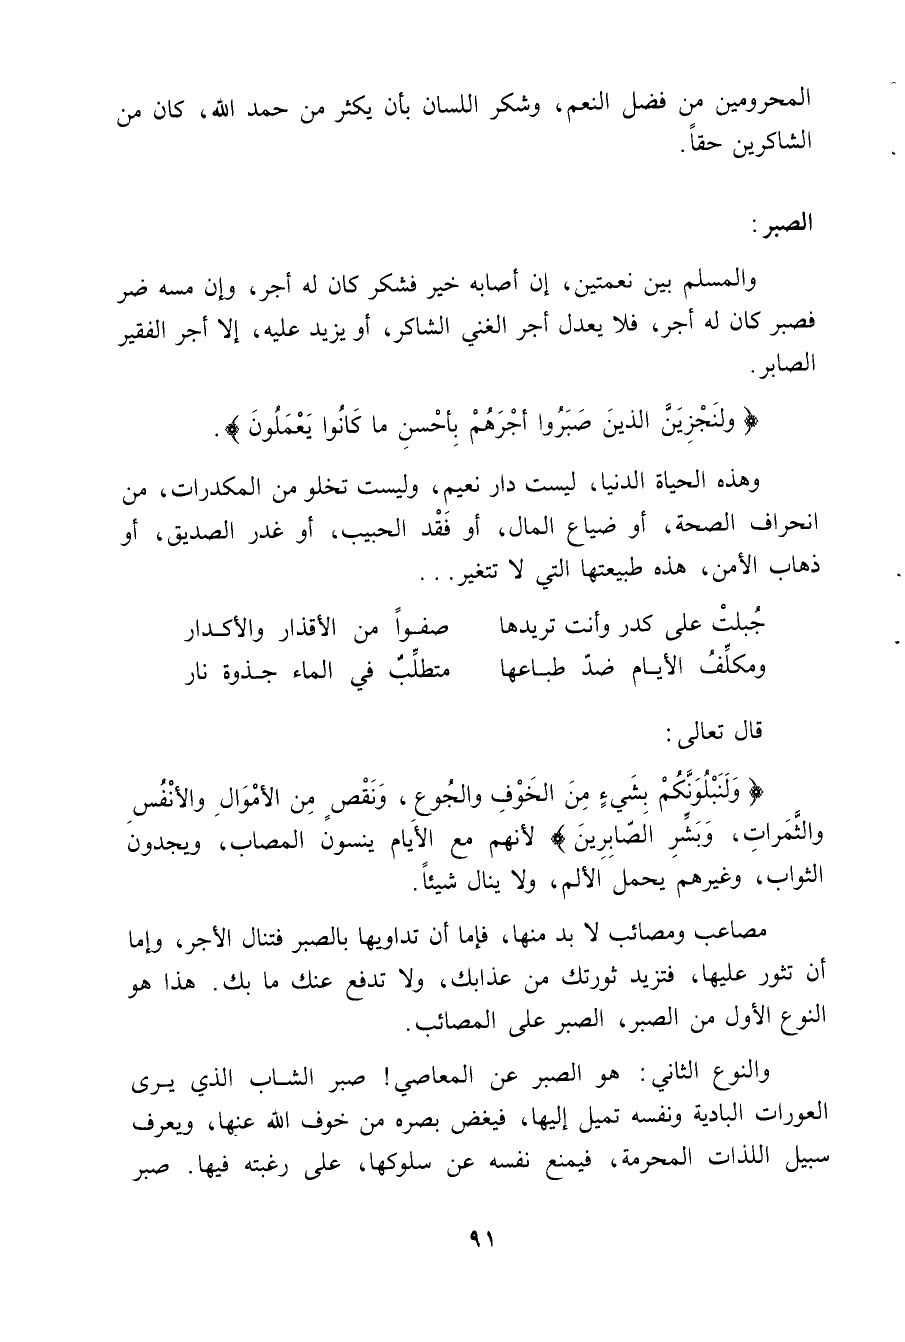 المحرومين من فضل النعم، وشكر اللسان بأن يكثر من حمد الله، كان من
الشاكرين حقاً.
الصبر :
والمسلم بين نعمتين، إن أصابه خير فشكر كان له أجر، وإن مسه ضر
فصبر كان له أجر، فلا يعدل أجر الغني الشاكر، أو يزيد عليه، إلا أجر الفقير
الصابر.
﴿ ولنَجْزِيَنَّ الذينَ صَبَرُوا أجْرَهُمْ بِأحْسنِ ما كَانُوا يَعْمَلُونَ ﴾.
وهذه الحياة الدنيا، ليست دار نعيم، وليست تخلو من المكدرات، من
انحراف الصحة، أو ضياع المال، أو فَقْد الحبيب، أو غدر الصديق، أو
ذهاب الأمن، هذه طبيعتها التي لا تتغير...
جُبلتْ على كدر وأنت تريدها صفـواً من الأقذار والأكـدار
ومكلِّفُ الأيـام ضدّ طبـاعها متطلِّبٌ في الماء جـذوة نار
قال تعالى :
﴿ وَلَنَبْلُوَنَّكُمْ بِشَيءٍ مِنَ الخَوْفِ والجُوعِ، وَنَقْصٍ مِن الأمْوَالِ والأنْفُسِ
والثَّمَراتِ، وَبَشِّرِ الصّابِرِينَ ﴾ لأنهم مع الأيام ينسون المصاب، ويجدون
الثواب، وغيرهم يحمل الألم، ولا ينال شيئاً.
مصاعب ومصائب لا بد منها، فإما أن تداويها بالصبر فتنال الأجر، وإما
أن تثور عليها، فتزيد ثورتك من عذابك، ولا تدفع عنك ما بك. هذا هو
النوع الأول من الصبر، الصبر على المصائب.
والنوع الثاني : هو الصبر عن المعاصي! صبر الشـاب الذي يـرى
العورات البادية ونفسه تميل إليها، فيغض بصره من خوف الله عنها، ويعرف
سبيل اللذات المحرمة، فيمنع نفسه عن سلوكها، على رغبته فيها. صبر
٩١